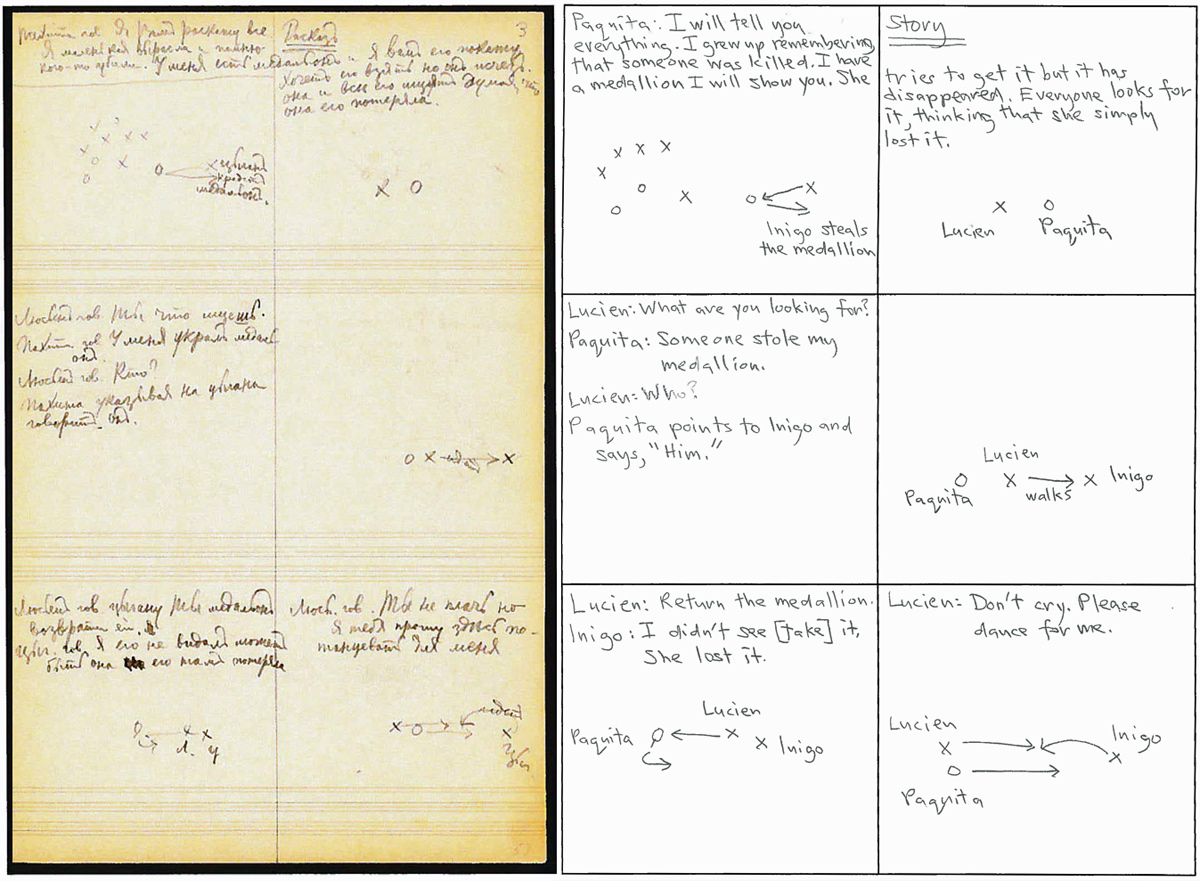 Пахита гов. Я вамъ раскажу все
Я маленькая выросла и помню
кого-то убили. У меня есть медальонъ и
3
Разсказъ
Я вамъ его покажу
Хочетъ его взять но онъ исчезъ.
она и все его ищутъ думая, что
она его потеряла.
цыганъ
крадетъ
медальонъ.
Люсьенъ гов. Ты что ищешь.
Пахита гов. У меня украли медаль
онъ.
Люсьенъ гов. Кто?
Пахита указывая на цыгана
говоритъ онъ.
идетъ
Люсьенъ гов цыгану Ты медальонъ
возврати ей.
Цыг. гов. Я его не видалъ можетъ
быть она его тамъ потеряла
Л. Ц
Люсь. гов. Ты не плачь но
я тебя прошу здѣсь по-
танцевать для меня
идетъ
Paquita: I will tell you
everything. I grew up remembering
that someone was killed. I have
a medallion I will show you. She
Inigo steals
the medallion
Story
tries to get it but it has
disappeared. Everyone looks for
it, thinking that she simply
lost it.
Lucien Paquita
Lucien: What are you looking for?
Paquita: Someone stole my
medallion.
Lucien: Who?
Paquita points to Inigo and
says, "Him."
Lucien
Paquita walks Inigo
Lucien: Return the medallion.
Inigo: I didn't see [take] it,
She lost it.
Lucien
Paquita Inigo
Lucien: Don't cry. Please
dance for me.
Lucien Inigo
Paquita